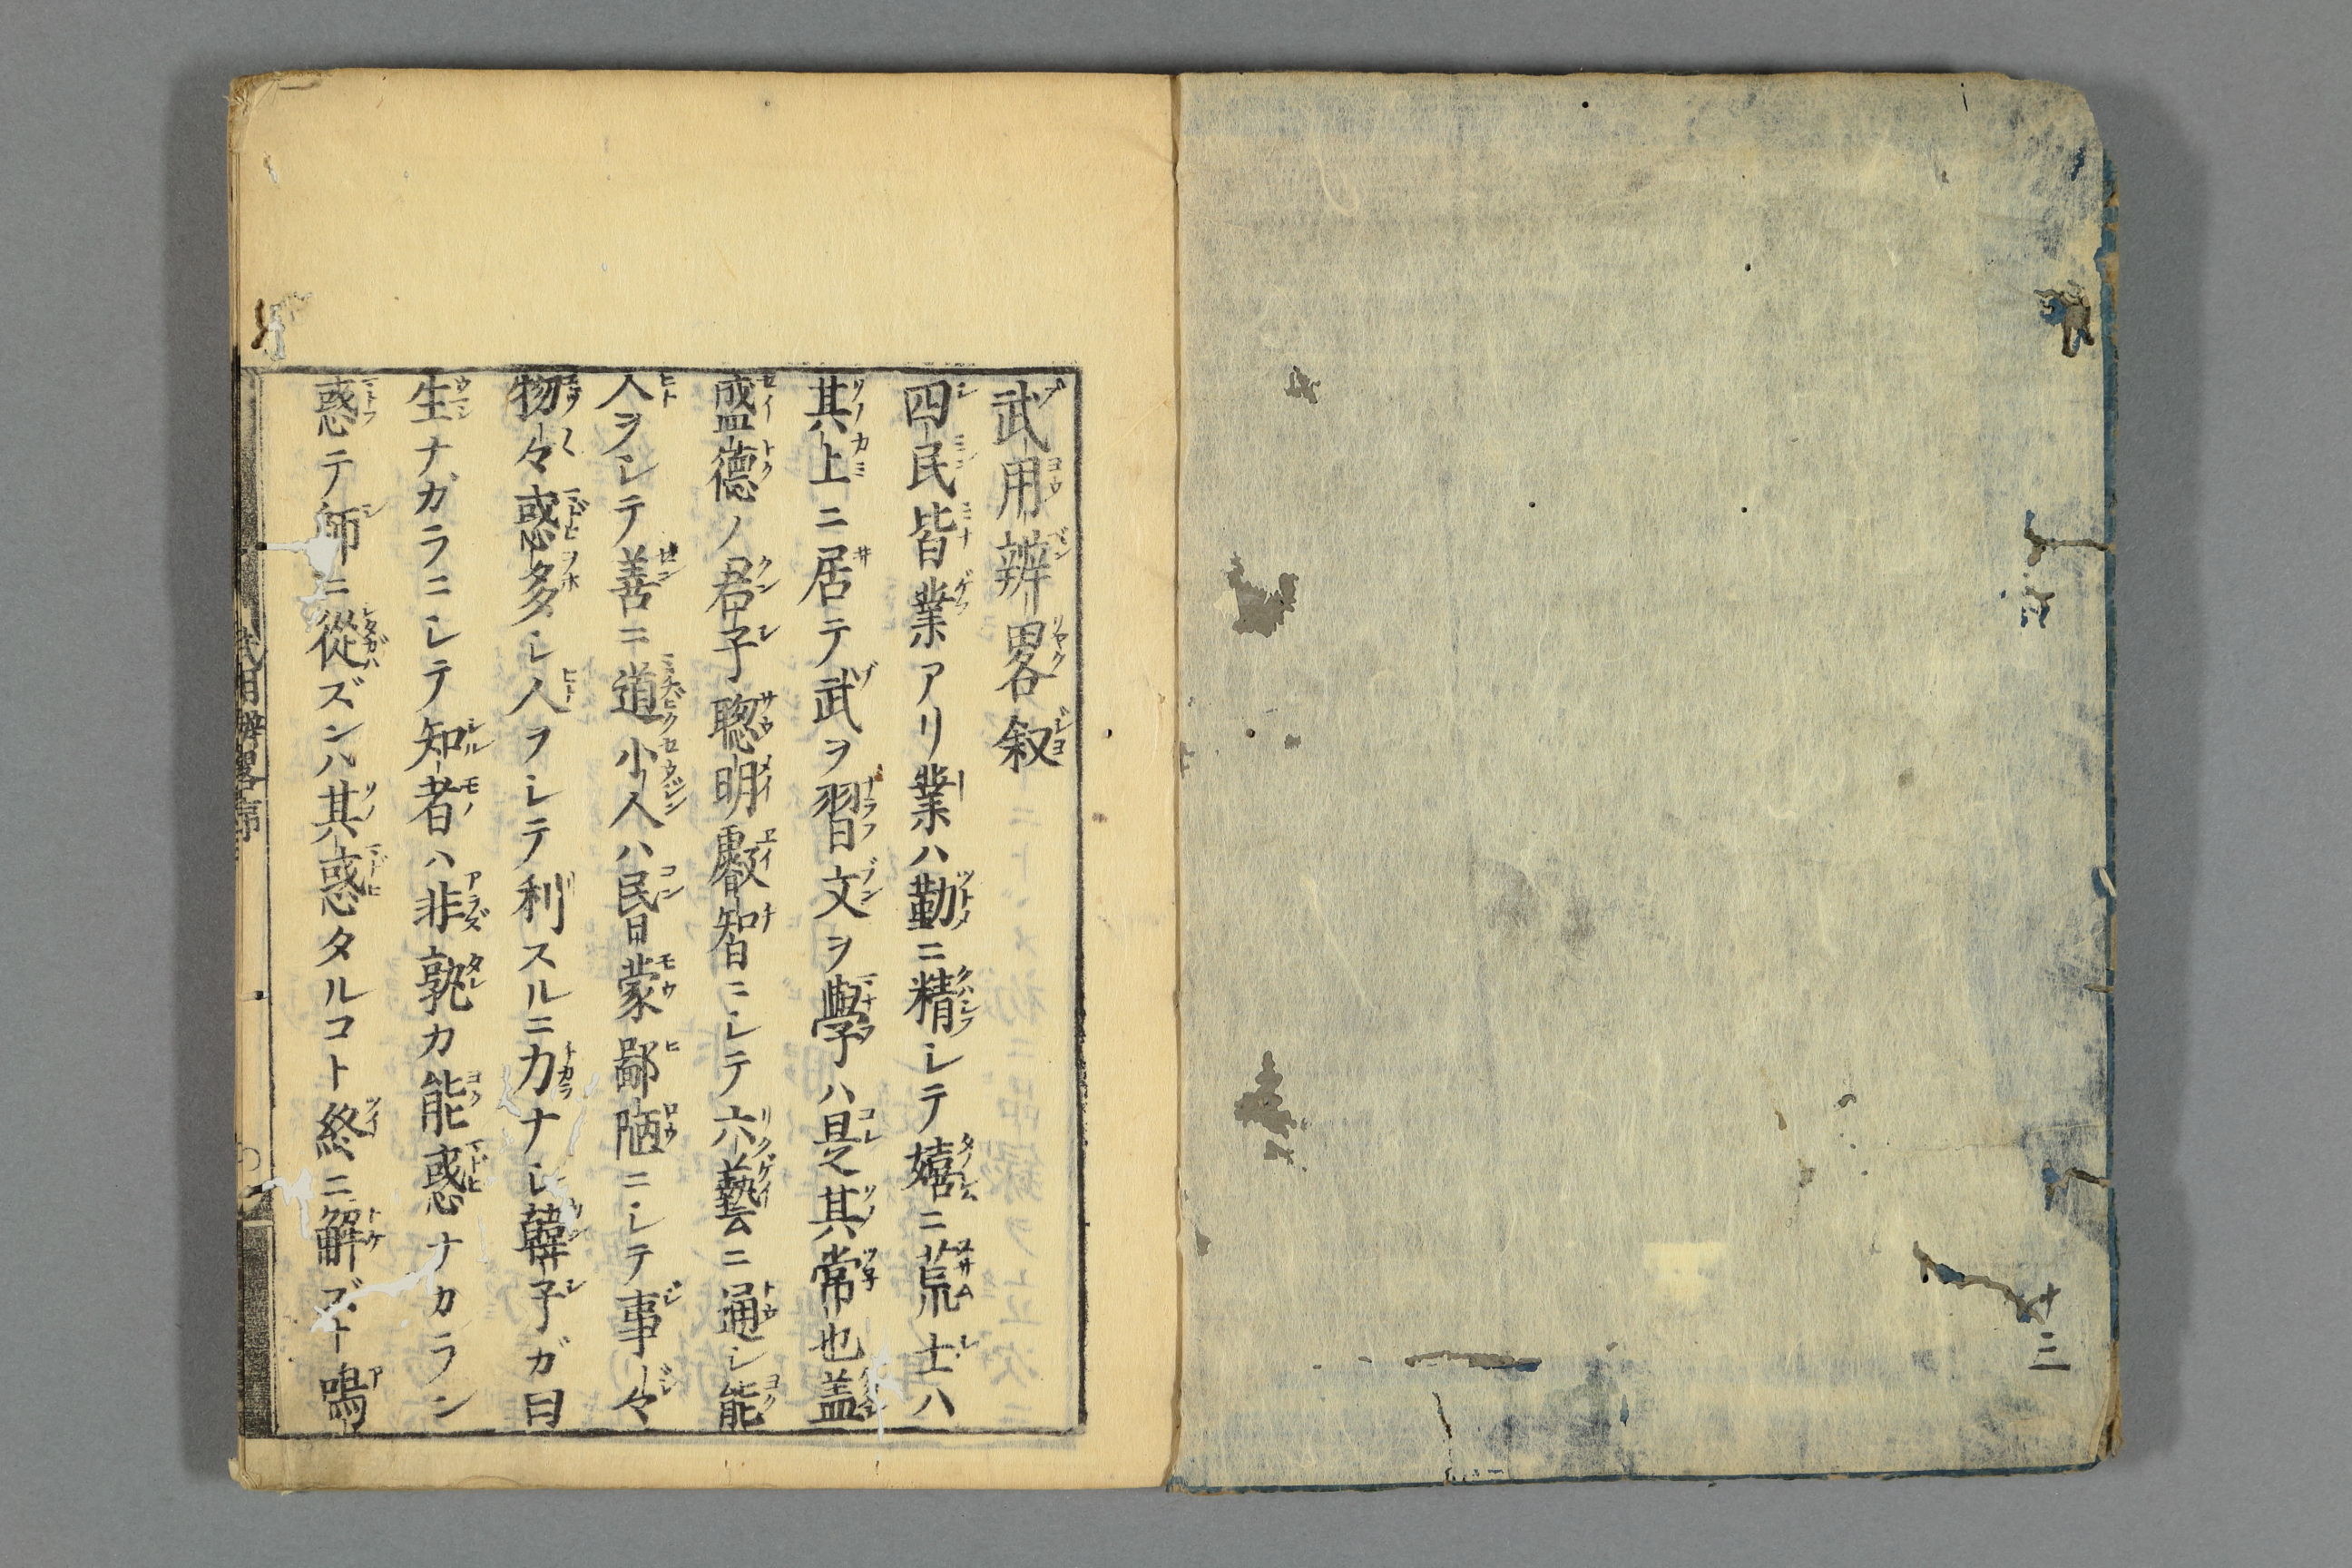 十三
武用辨畧叙
四民皆業アリ業ハ勤ニ精シテ嬉ニ荒士ハ
其上ニ居テ武ヲ習文ヲ學ハ是其常也盖
盛德ノ君子聰明叡智ニシテ六藝ニ通シ能
人ヲシテ善ニ道小人ハ民昏蒙鄙陋ニシテ事々
物々惑多シ人ヲシテ利スルニ力ナシ韓子ガ曰
生ナガラニシテ知者ハ非孰カ能惑ナカラン
惑テ師ニ從ズンハ其惑タルコト終ニ解ズト嗚
武用辨畧序